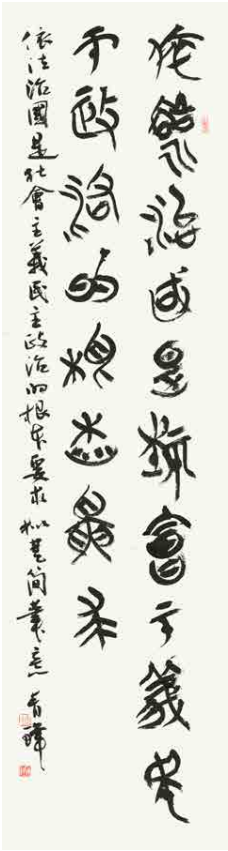 依法治國是社會主義民
主政治的根本要求
依法治國是社會主義民主政治的根本要求 拟楚簡筆意